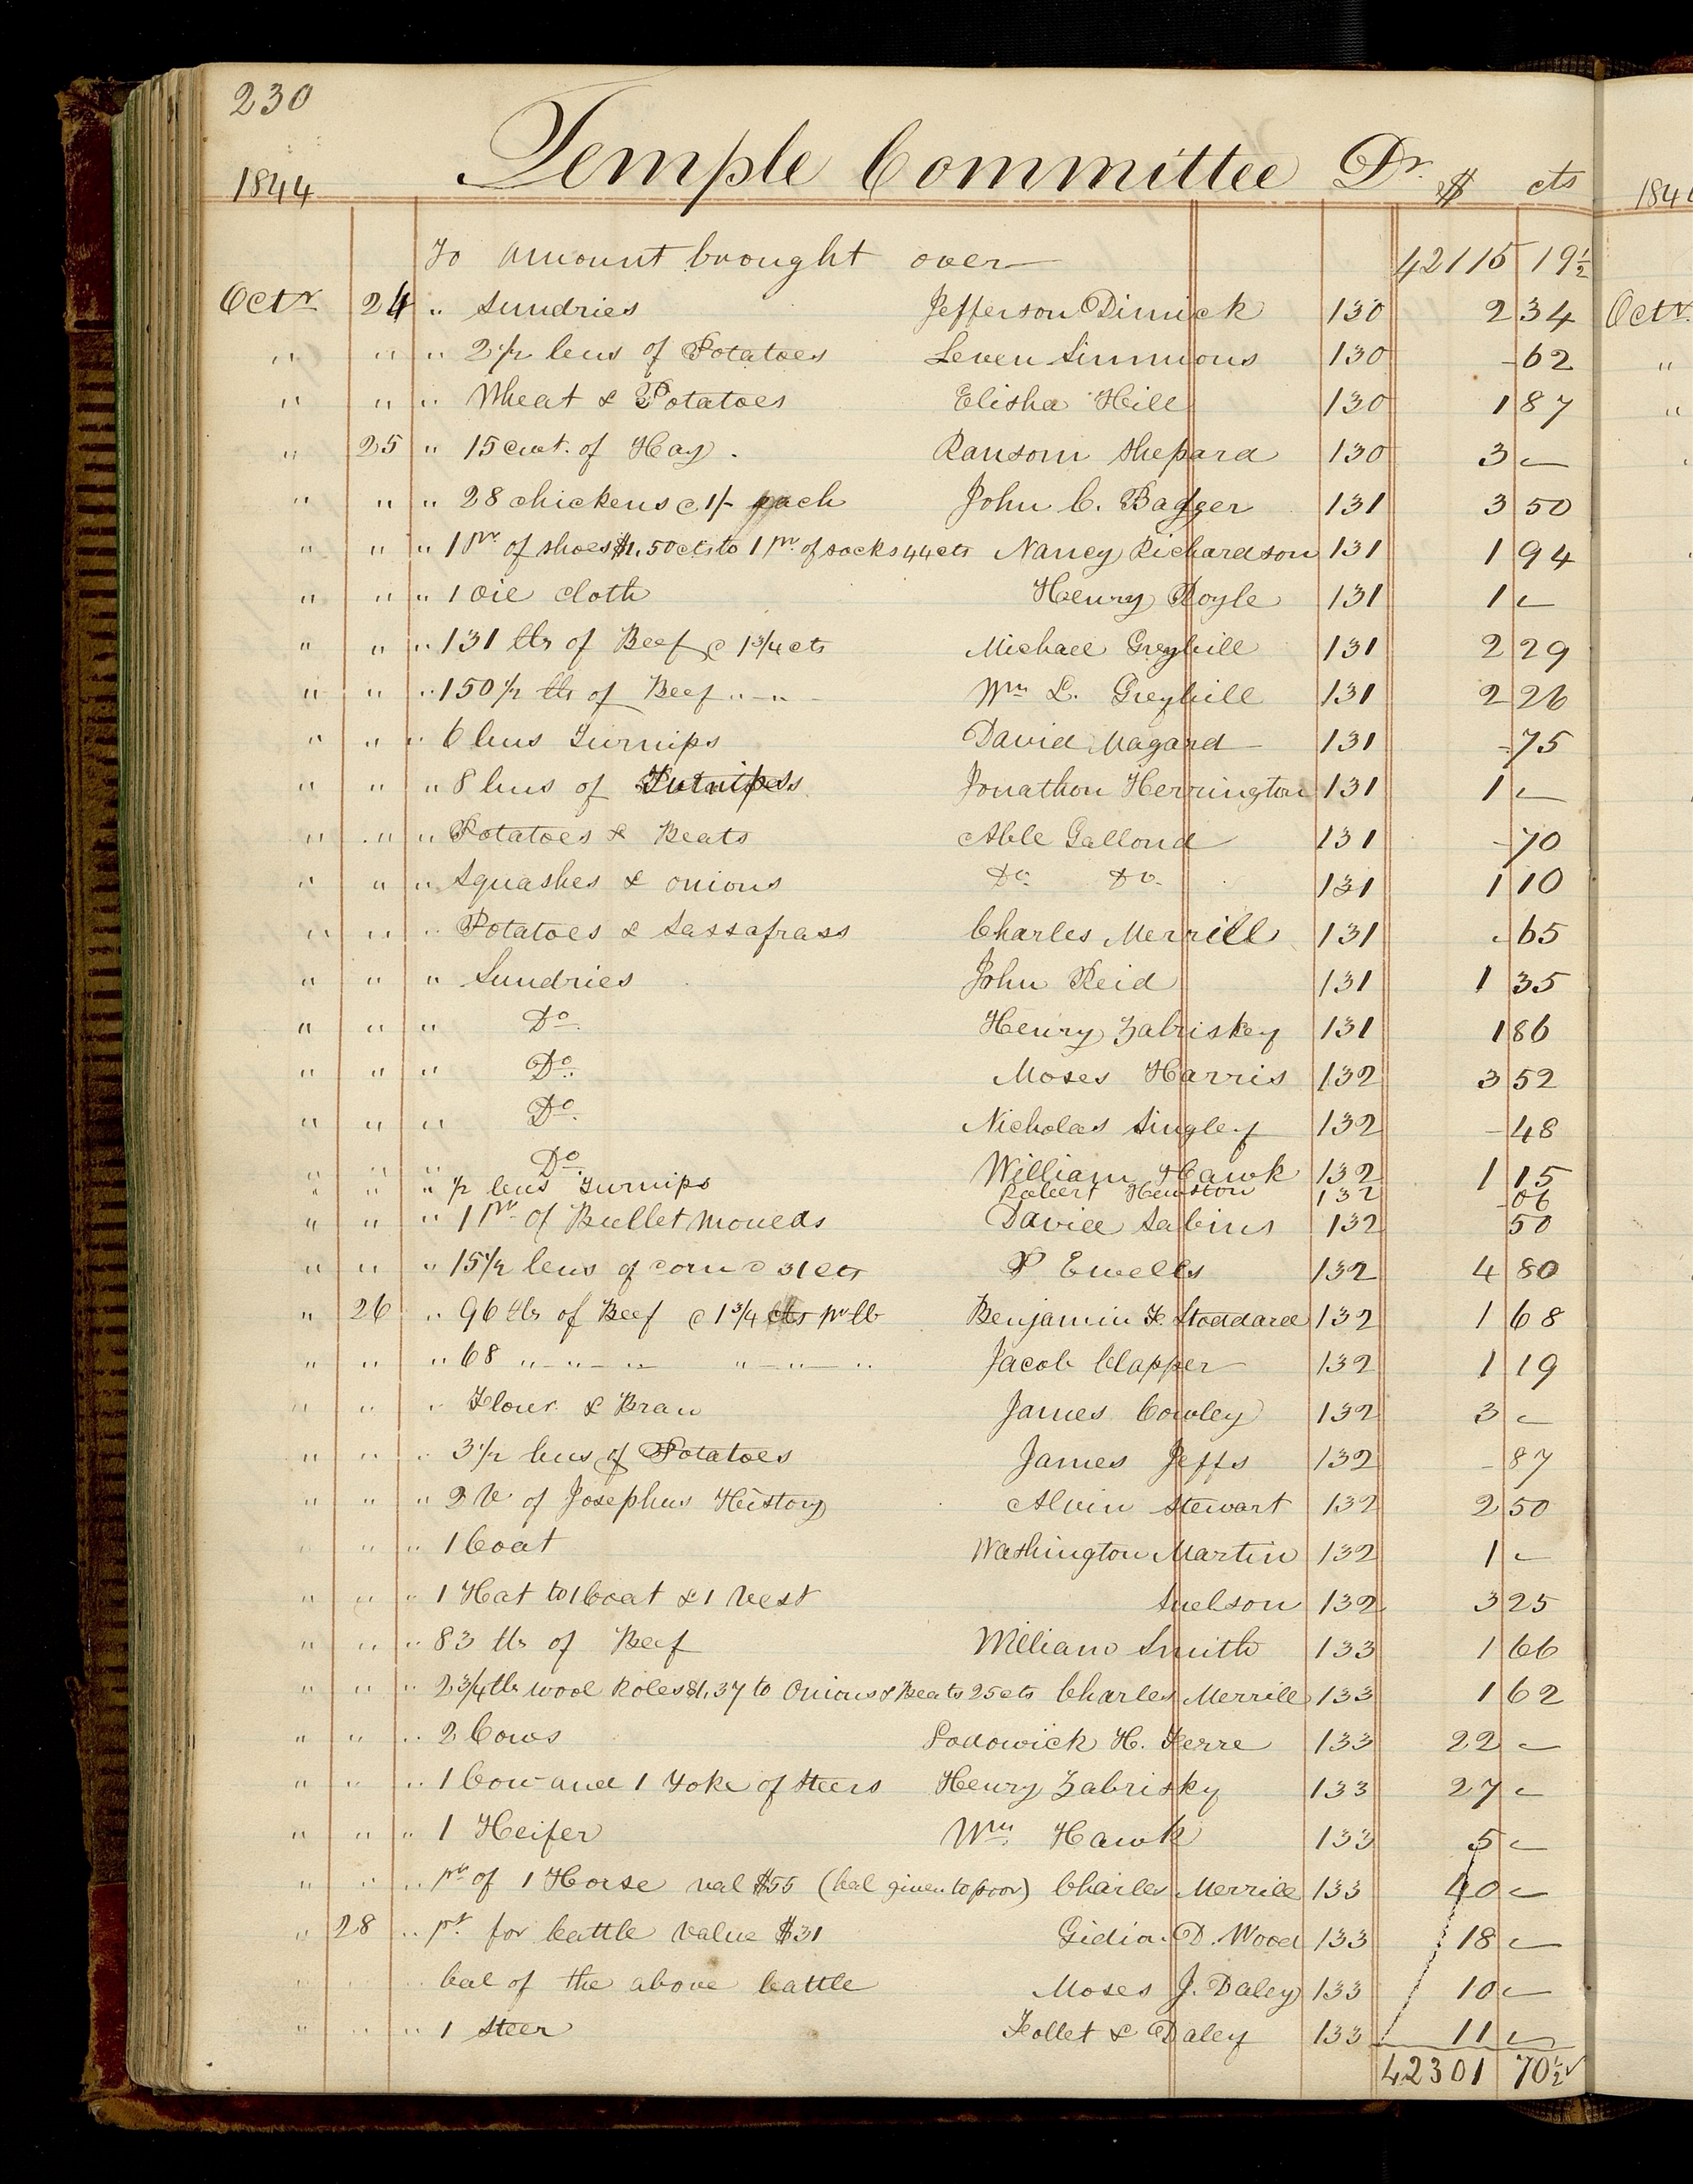 230
1844 Temple Committee Dr. $ cts
To amount brought over 42115 19½
Octr 24 " Sundries Jefferson Dimick 130 2 34
" " " 2½ bus of Potatoes Leven Simmons 130 - 62
" " " Wheat & Potatoes Elisha Hill 130 1 87
" 25 " 15 cwt. of Hay. Ransom Shepard 130 3 -
" " " 28 chickens @ 1/- each John C. Badger 131 3 50
" " " 1 pr. of shoes $1,50cts to 1 pr. of socks 44cts Nancy Richardson 131 1 94
" " " 1 Oil cloth Henry Royle 131 1 -
" " " 131 lbs of Beef @ 1¾ cts Michael Greybill 131 2 29
" " " 150½ lbs of Beef " - " - Wm L. Greybill 131 2 26
" " " 6 bus Turnips David Magard 131 - 75
" " " 8 bus of Jonathon Herrington 131 1 -
" " " Potatoes & Beats Able Gallond 131 - 70
" " " Squashes & onions Do. Do. 131 1 10
" " " Potatoes & Sassafrass Charles Merrill 131 - 65
" " " Sundries John Reid 131 1 35
" " " Do. Henry Zabriskey 131 1 86
" " " Do. Moses Harris 132 3 52
" " " Do. Nicholas Singley 132 - 48
" " " Do. William Hawk 132 1 15
" " " ½ bus Turnips Robert Hewston 132 - 06
" " " 1 pr. of Bullet moulds David Sabins 132 50
" " " 15½ bus of corn @ 31 cts P Ewells 132 4 80
" 26 " 96 lbs of Beef @ 1¾ cts pr lb Benjamin F. Stoddard 132 1 68
" " " 68 " - " - " " - " - " Jacob Clapper 132 1 19
" " " Flour & Bran James Cowley 132 3 -
" " " 3½ bus of Potatoes James Jeffs 132 - 87
" " " 2 V. of Josephus History Alvin Stewart 132 2 50
" " " 1 Coat Washington Martin 132 1 -
" " " 1 Hat to 1 Coat & 1 Vest Snelson 132 3 25
" " " 83 lbs of Beef William Smith 133 1 66
" " " 2¾ lbs wool Roles $1,37 to Onions & Beats 25cts Charles Merrill 133 1 62
" " " 2 Cows Lodowick H. Ferre 133 22 -
" " " 1 Cow and 1 Yoke of Steers Henry Zabrisky 133 27 -
" " " 1 Heifer Wm. Hawk 133 5 -
" " " pr of 1 Horse val $55 (bal given to poor) Charles Merrill 133 40 -
" 28 " pt. for Cattle value $31 Gidion D. Wood 133 18 -
" " " bal of the above Cattle Moses J. Daley 133 10 -
" " " 1 Steer Follet & Daley 133 11 -
42301 70½ ✓
184
Octr.
"
"